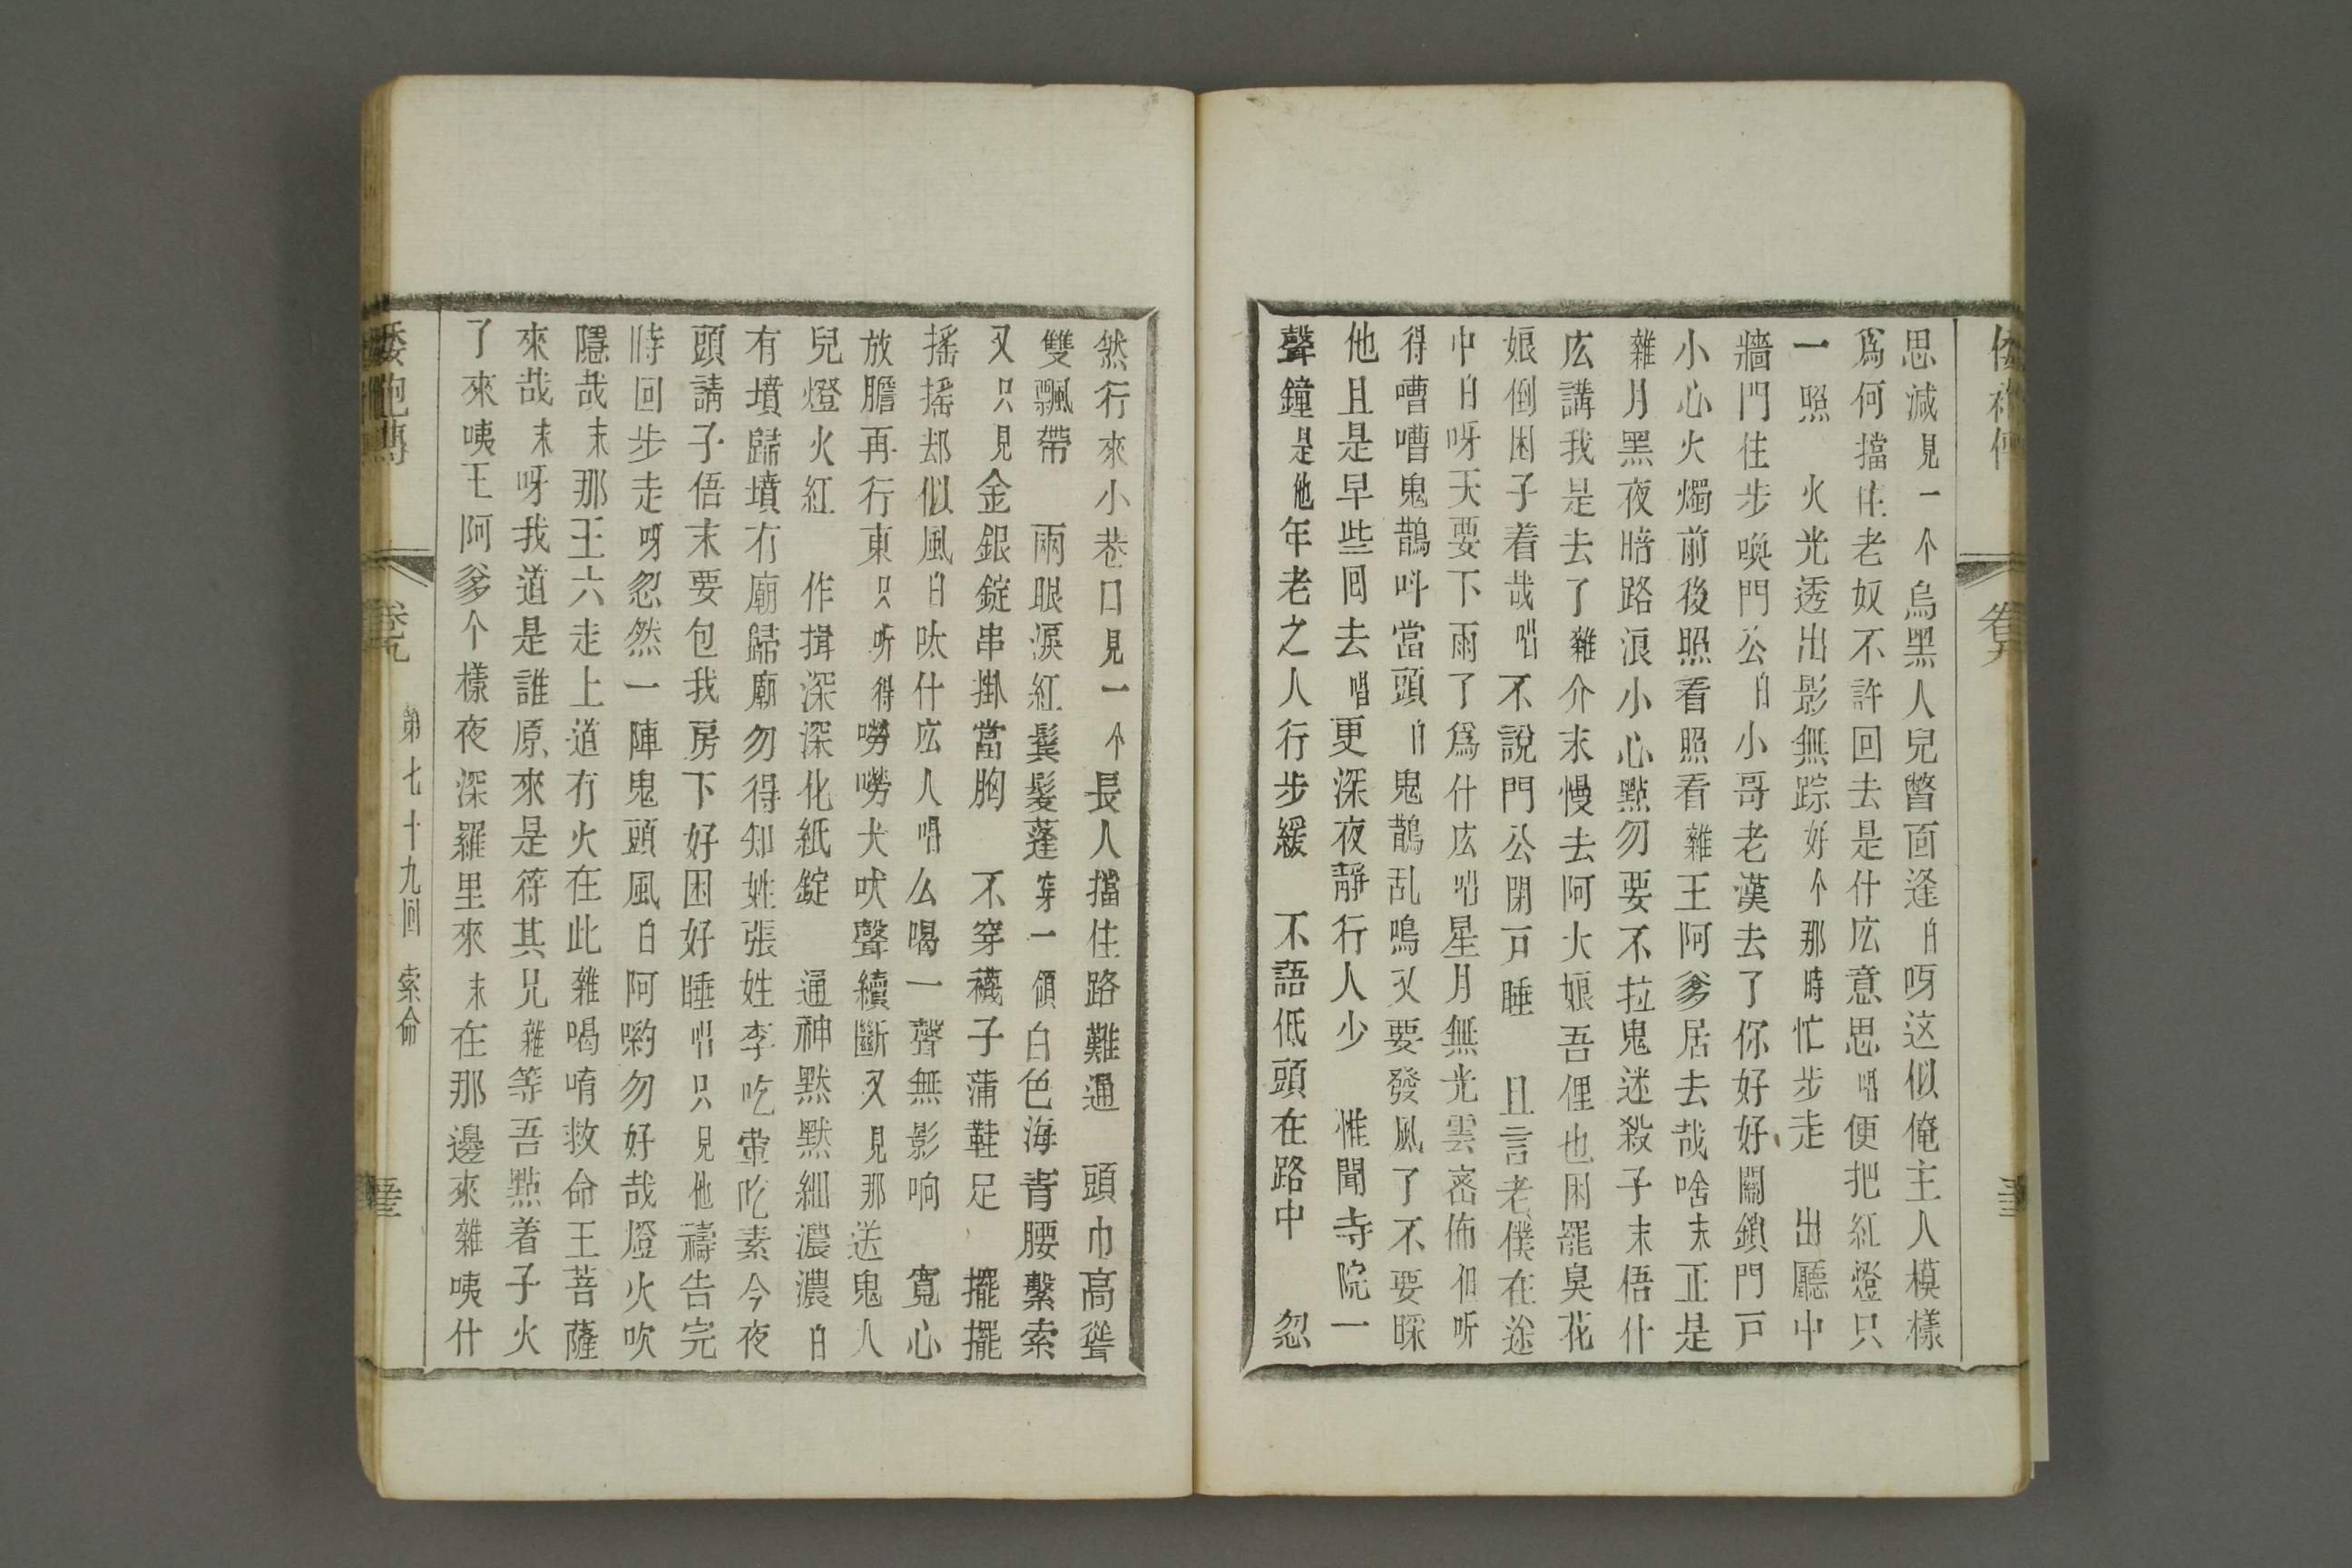 思減見一个烏黑人兒瞥面逢白呀这似俺主人模樣
爲何擋住老奴不許回去是什庅意思唱便把紅燈只
一照 火光透出影無踪好个那時忙步走 出廳中
牆門住步喚門公白小哥老漢去了你好好關鎖門戸
小心火燭前後照看照看雜王阿爹居去哉啥末正是
雜月黑夜暗路浪小心點勿要不拉鬼迷殺子末俉什
庅講我是去了雜介末慢去阿大娘吾俚也困罷臭花
娘倒困子着哉唱不說門公閉戸睡 且言老僕在途
中白呀天要下雨了爲什庅唱星月無光雲宻佈但听
得嘈嘈鬼鵲呌當頭白鬼鵲乱鳴又要發風了不要睬
他且是早些囘去唱更深夜靜行人少 惟聞寺院一
聲鐘是他年老之人行步緩 不語低頭在路中 忽
然行來小巷口見一个長人擋住路難通 頭巾高聳
雙飄帶 兩眼淚紅鬓髮蓬穿一領白色海青腰繫索
又只見金銀錠串掛當胸 不穿襪子蒲鞋足 擺擺
摇摇却似風白呔什庅人唱么喝一聲無影响 寬心
放膽再行東只听得嘮嘮犬吠聲續斷又見那送鬼人
兒燈火紅 作揖深深化紙錠 通神黙黙細濃濃白
有墳歸墳冇廟歸廟勿得知姓張姓李吃葷吃素今夜
頭請子俉末要包我房下好困好睡唱只見他禱告完
時回步走呀忽然一陣鬼頭風白阿喲勿好哉燈火吹
隱哉末那王六走上道冇火在此雜喝唷救命王菩薩
來哉末呀我道是誰原來是符其兄雜等吾點着子火
了來咦王阿爹个樣夜深羅里來末在那邊來雜咦什
倭袍傳
第七十九回 索命